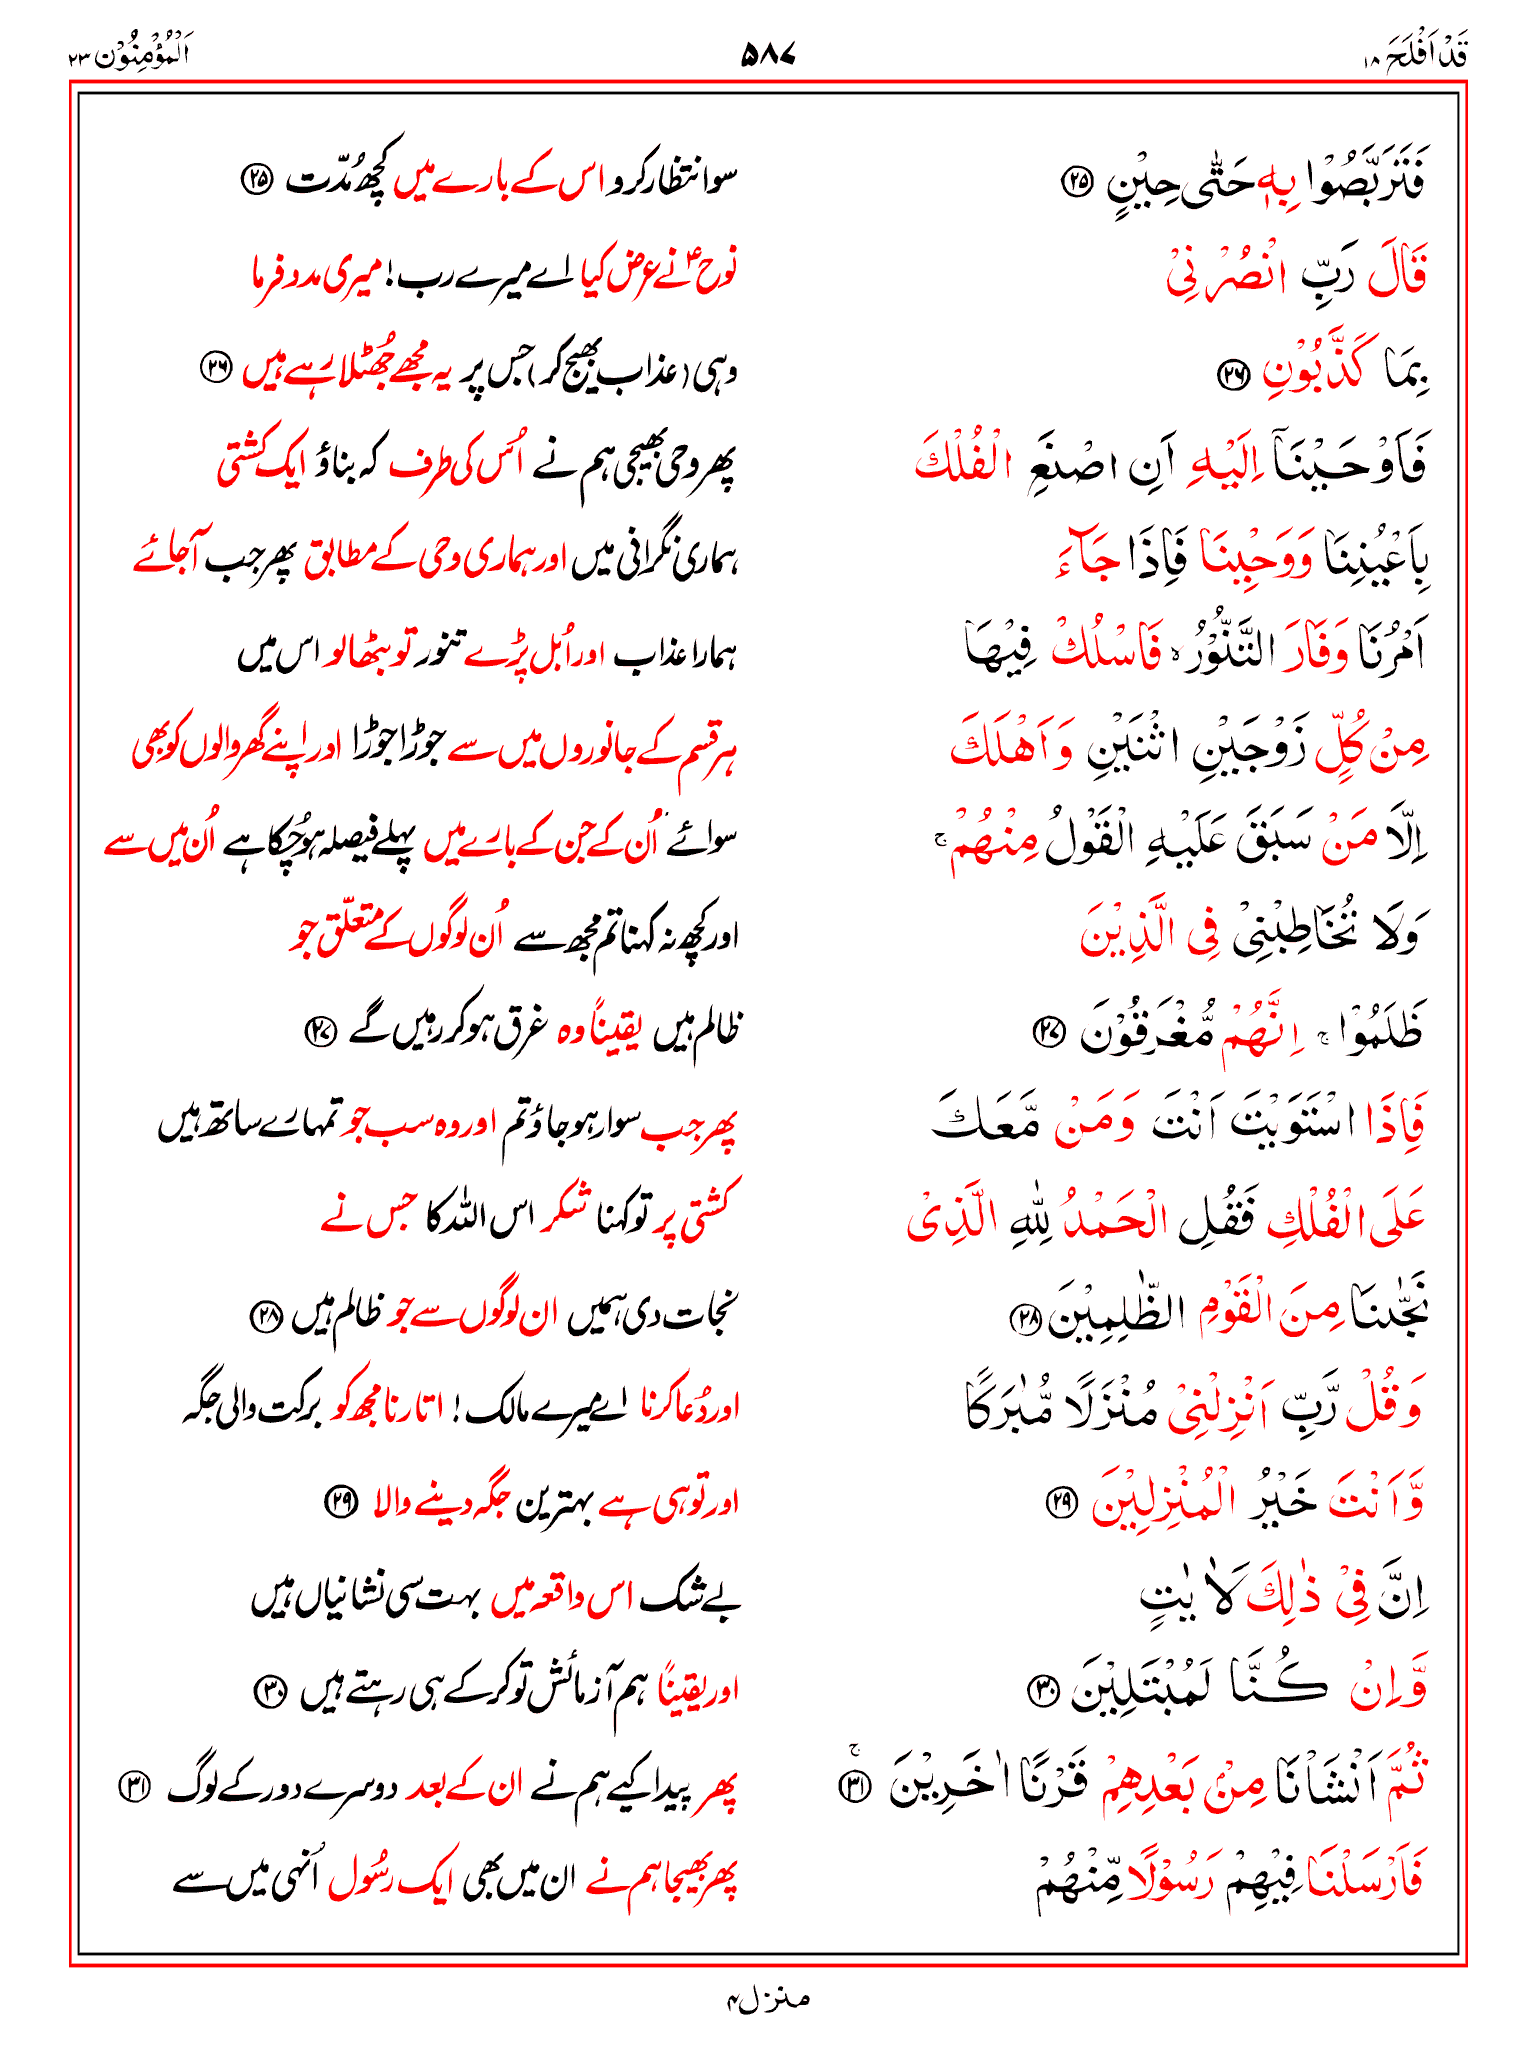 قَدْ اَفْلَحَ ١٨ ۵۸۷ اَلْمُؤْمِنُوْن ٢٣
فَتَرَبَّصُوْا بِهٖ حَتّٰى حِيْنٍ ﴿۲۵﴾ سو انتظار کرو اس کے بارے میں کچھ مُدّت ﴿۲۵﴾
قَالَ رَبِّ انْصُرْنِيْ نوحؑ نے عرض کیا اے میرے رب! میری مدد فرما
بِمَا كَذَّبُوْنِ ﴿۲۶﴾ وہی (عذاب بھیج کر) جس پر یہ مجھے جُھٹلا رہے ہیں ﴿۲۶﴾
فَاَوْحَيْنَآ اِلَيْهِ اَنِ اصْنَعِ الْفُلْكَ پھر وحی بھیجی ہم نے اُس کی طرف کہ بناؤ ایک کشتی
بِاَعْيُنِنَا وَوَحْيِنَا فَاِذَا جَآءَ ہماری نگرانی میں اور ہماری وحی کے مطابق پھر جب آجائے
اَمْرُنَا وَفَارَ التَّنُّوْرُ ۙ فَاسْلُكْ فِيْهَا ہمارا عذاب اور اُبل پڑے تنور تو بٹھالو اس میں
مِنْ كُلٍّ زَوْجَيْنِ اثْنَيْنِ وَاَهْلَكَ ہر قسم کے جانوروں میں سے جوڑا جوڑا اور اپنے گھر والوں کو بھی
اِلَّا مَنْ سَبَقَ عَلَيْهِ الْقَوْلُ مِنْهُمْ ۚ سوائے اُن کے جن کے بارے میں پہلے فیصلہ ہو چُکا ہے اُن میں سے
وَلَا تُخَاطِبْنِيْ فِي الَّذِيْنَ اور کچھ نہ کہنا تم مجھ سے اُن لوگوں کے متعلّق جو
ظَلَمُوْا ۚ اِنَّهُمْ مُّغْرَقُوْنَ ﴿۲۷﴾ ظالم ہیں یقیناً وہ غرق ہو کر رہیں گے ﴿۲۷﴾
فَاِذَا اسْتَوَيْتَ اَنْتَ وَمَنْ مَّعَكَ پھر جب سوار ہو جاؤ تم اور وہ سب جو تمہارے ساتھ ہیں
عَلَى الْفُلْكِ فَقُلِ الْحَمْدُ لِلّٰهِ الَّذِيْ کشتی پر تو کہنا شکر اس اللہ کا جس نے
نَجّٰىنَا مِنَ الْقَوْمِ الظّٰلِمِيْنَ ﴿۲۸﴾ نجات دی ہمیں ان لوگوں سے جو ظالم ہیں ﴿۲۸﴾
وَقُلْ رَّبِّ اَنْزِلْنِيْ مُنْزَلًا مُّبٰرَكًا اور دُعا کرنا اے میرے مالک! اتارنا مجھ کو برکت والی جگہ
وَّاَنْتَ خَيْرُ الْمُنْزِلِيْنَ ﴿۲۹﴾ اور تو ہی ہے بہترین جگہ دینے والا ﴿۲۹﴾
اِنَّ فِيْ ذٰلِكَ لَاٰيٰتٍ بے شک اس واقعہ میں بہت سی نشانیاں ہیں
وَّاِنْ كُنَّا لَمُبْتَلِيْنَ ﴿۳۰﴾ اور یقیناً ہم آزمائش تو کر کے ہی رہتے ہیں ﴿۳۰﴾
ثُمَّ اَنْشَاْنَا مِنْۢ بَعْدِهِمْ قَرْنًا اٰخَرِيْنَ ﴿۳۱﴾ۚ پھر پیدا کیے ہم نے ان کے بعد دوسرے دور کے لوگ ﴿۳۱﴾
فَاَرْسَلْنَا فِيْهِمْ رَسُوْلًا مِّنْهُمْ پھر بھیجا ہم نے ان میں بھی ایک رسُول اُنہی میں سے
منزل ۴